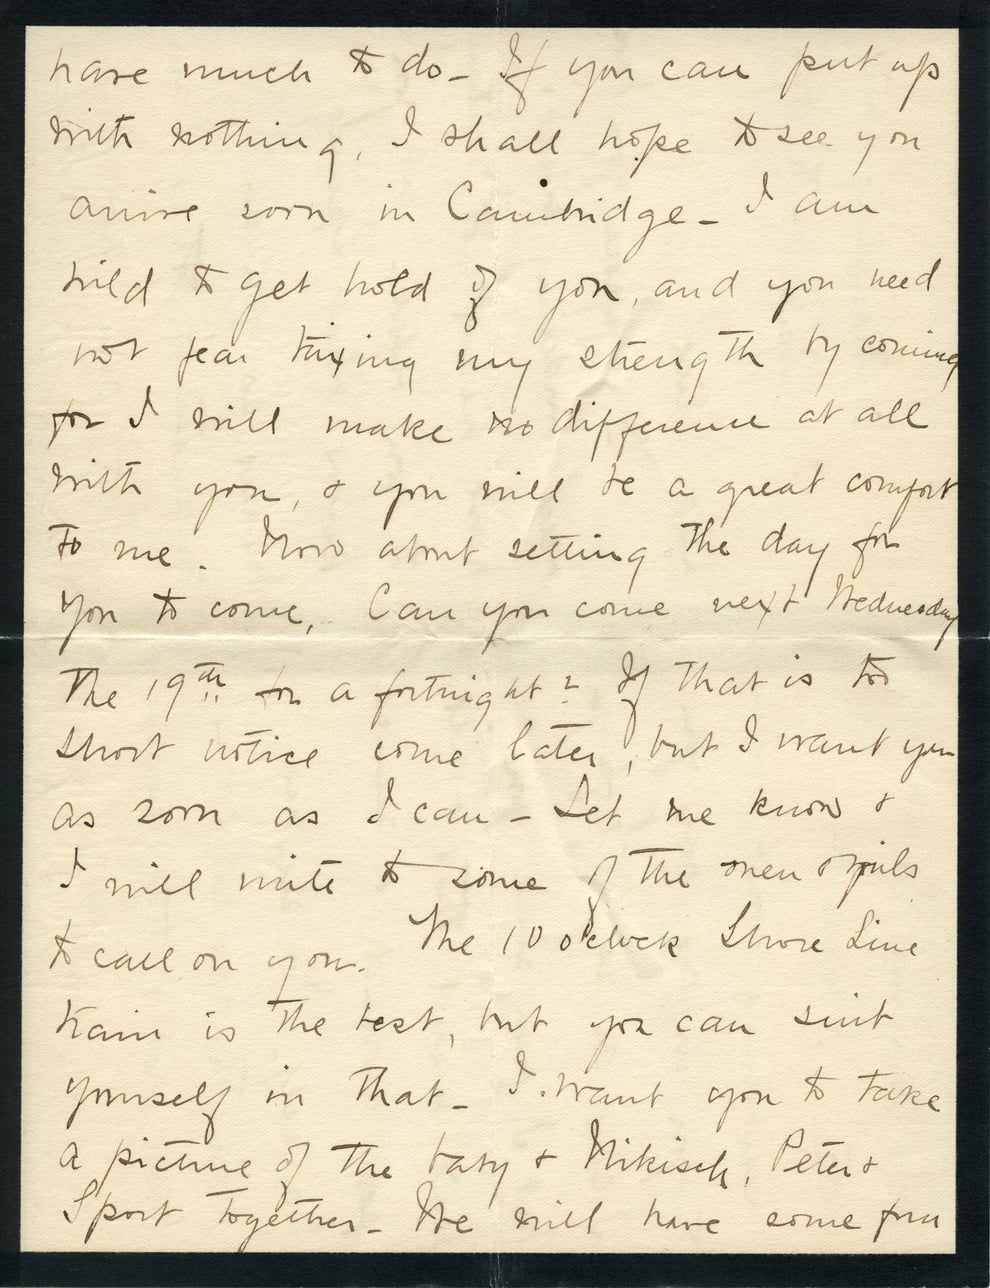 have much to do - If you can put up
with nothing, I shall hope to see you
arrive soon in Cambridge - I am
wild to get hold of you, and you need
not fear taxing my strength by coming
for I will make no difference at all
with you, & you will be a great comfort
to me. Now about setting the day for
you to come, Can you come next Wednesday
the 19th for a fortnight? If that is too
short notice come later, but I want you
as soon as I can - Let me know &
I will write to some of the men & girls
to call on you. The 10 o'clock Shore Line
train is the best, but you can suit
yourself in that - I want you to take
a picture of the baby & Nikisch, Peter &
Sport together - We will have some fun